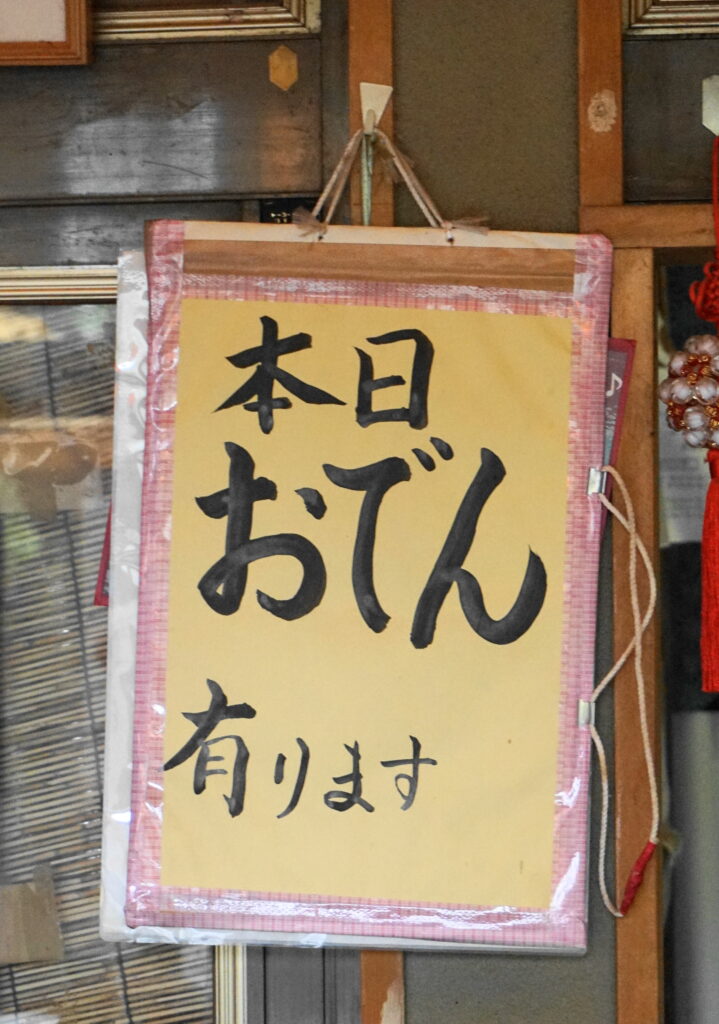 本日
おでん
有ります